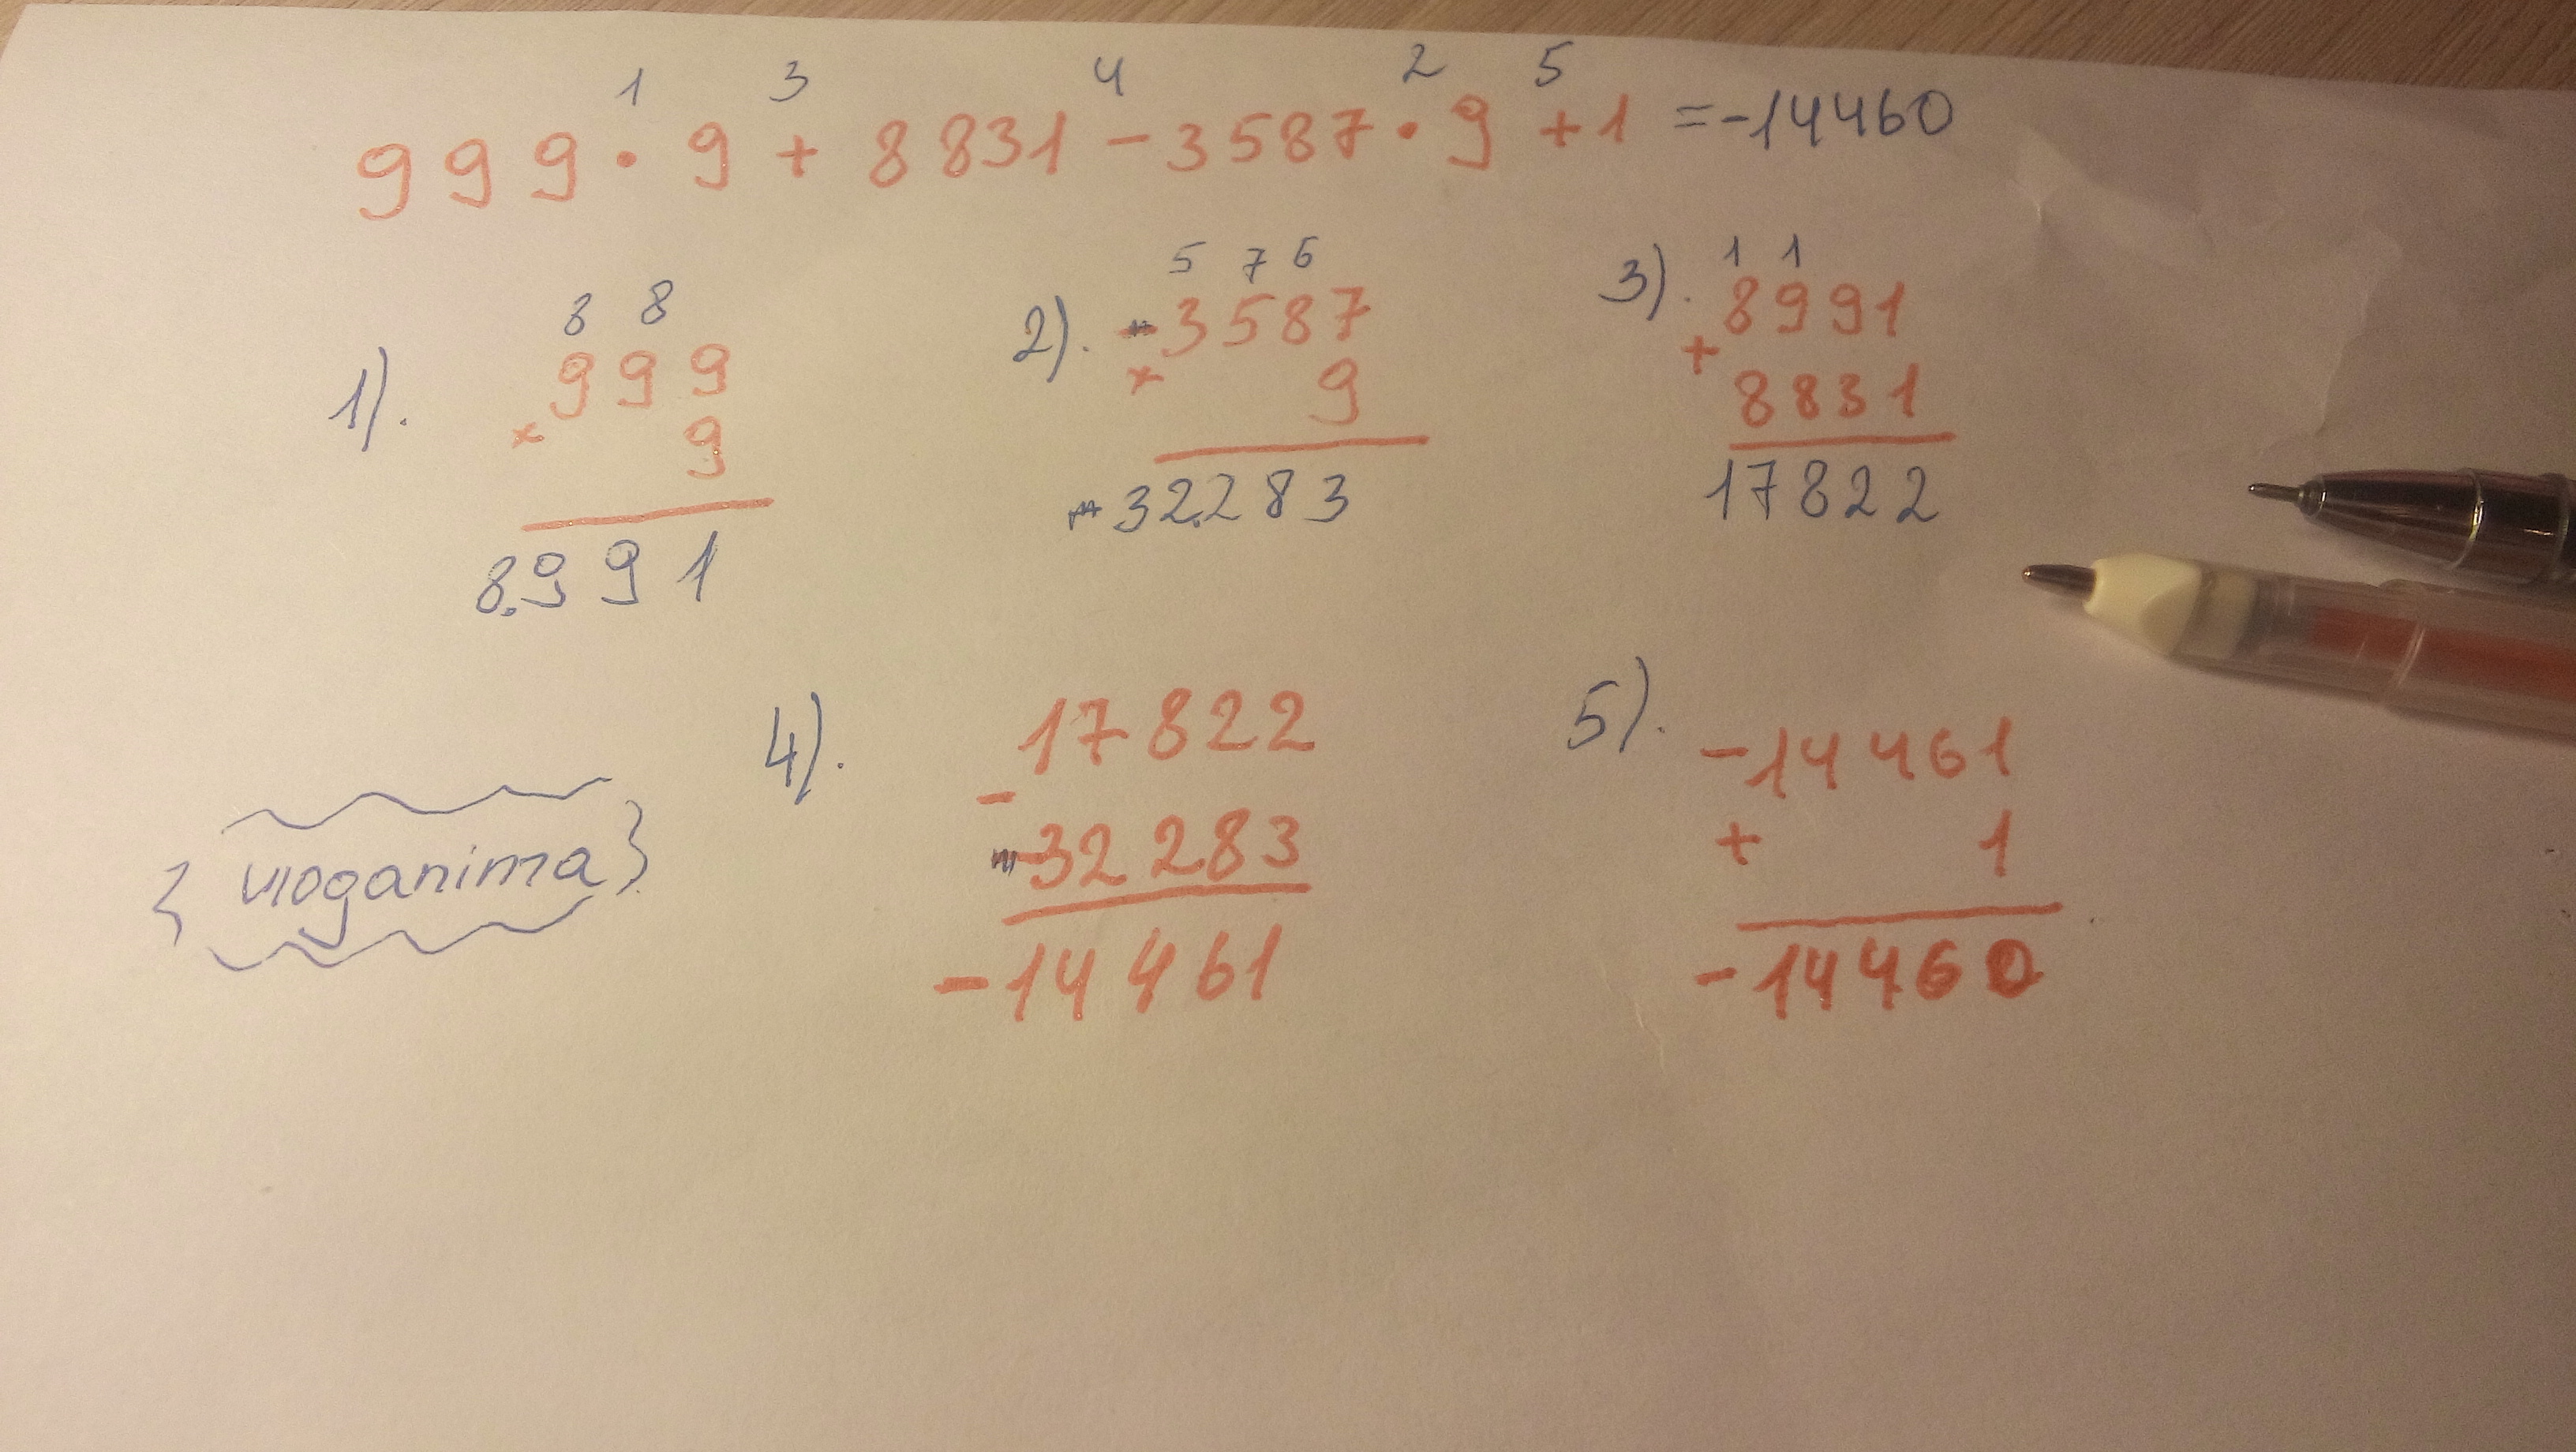 1 3 4 2 5
999 · 9 + 8831 - 3587 · 9 + 1 = -14460
1).
8 8
999
× 9
8.991
2).
5 7 6
3587
× 9
32.283
3).
1 1
8991
+
8831
17822
4).
17822
-
32283
-14461
5).
-14461
+ 1
-14460